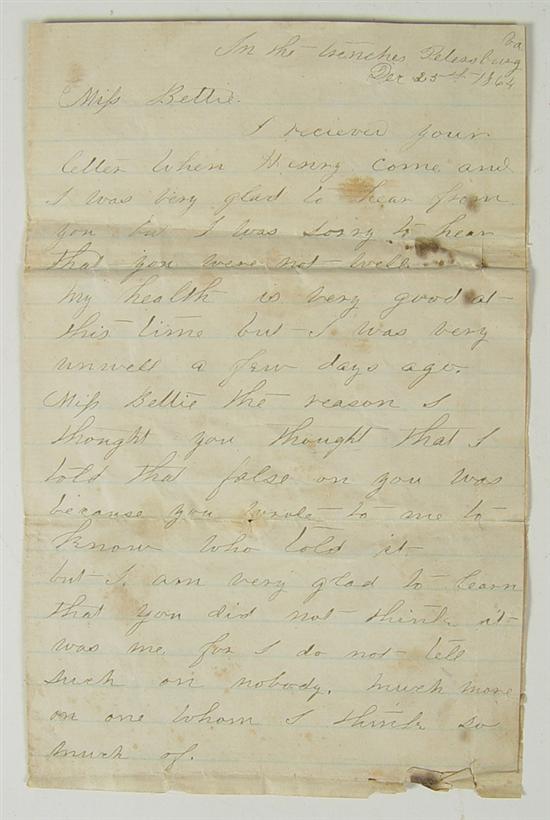 In the trenches Petersburg Va
Dec 25th 1864
Miss Bettie.
I recieved your
letter when Henry come and
I was very glad to hear from
you but I was sorry to hear
that you were not well.
My health is very good at
this time but I was very
unwell a few days ago.
Miss Bettie the reason I
thought you thought that I
told that false on you was
because you wrote to me to
know who told it
but I am very glad to learn
that you did not think it
was me for I do not tell
such on nobody. much more
on one whom I think so
much of.